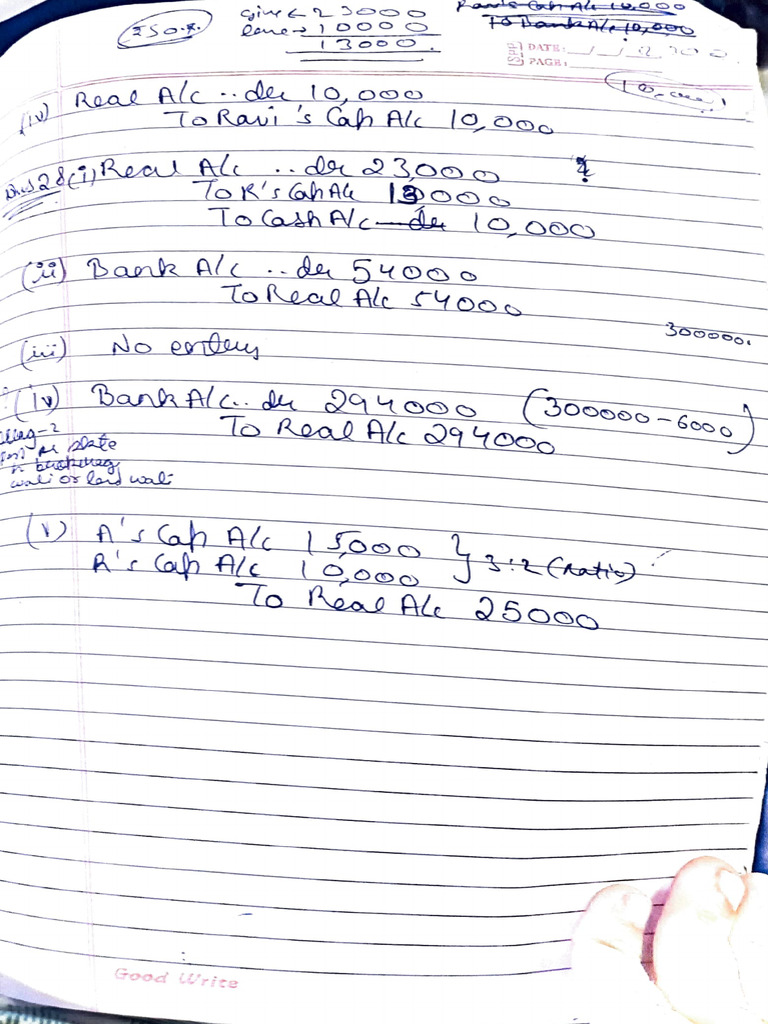 250.8.
give ← 23000
10000
13000.
Ravi's Cap A/c 10,000
To Bank A/c 10,000
DATE:
PAGE:
(iv) Real A/c .. dr 10,000
To Ravi's Cap A/c 10,000
28 (i) Real A/c .. dr 23,000
To R's Cap A/c 13000
To Cash A/c dr 10,000
(ii) Bank A/c .. dr 54000
To Real A/c 54000
300000.
(iii) No entery
(iv) Bank A/c.. dr 294000 (300000-6000)
To Real A/c 294000
wali or land wali
(v) A's Cap A/c 15,000 } 3:2 (ratio)
R's Cap A/c 10,000
To Real A/c 25000
Good Write